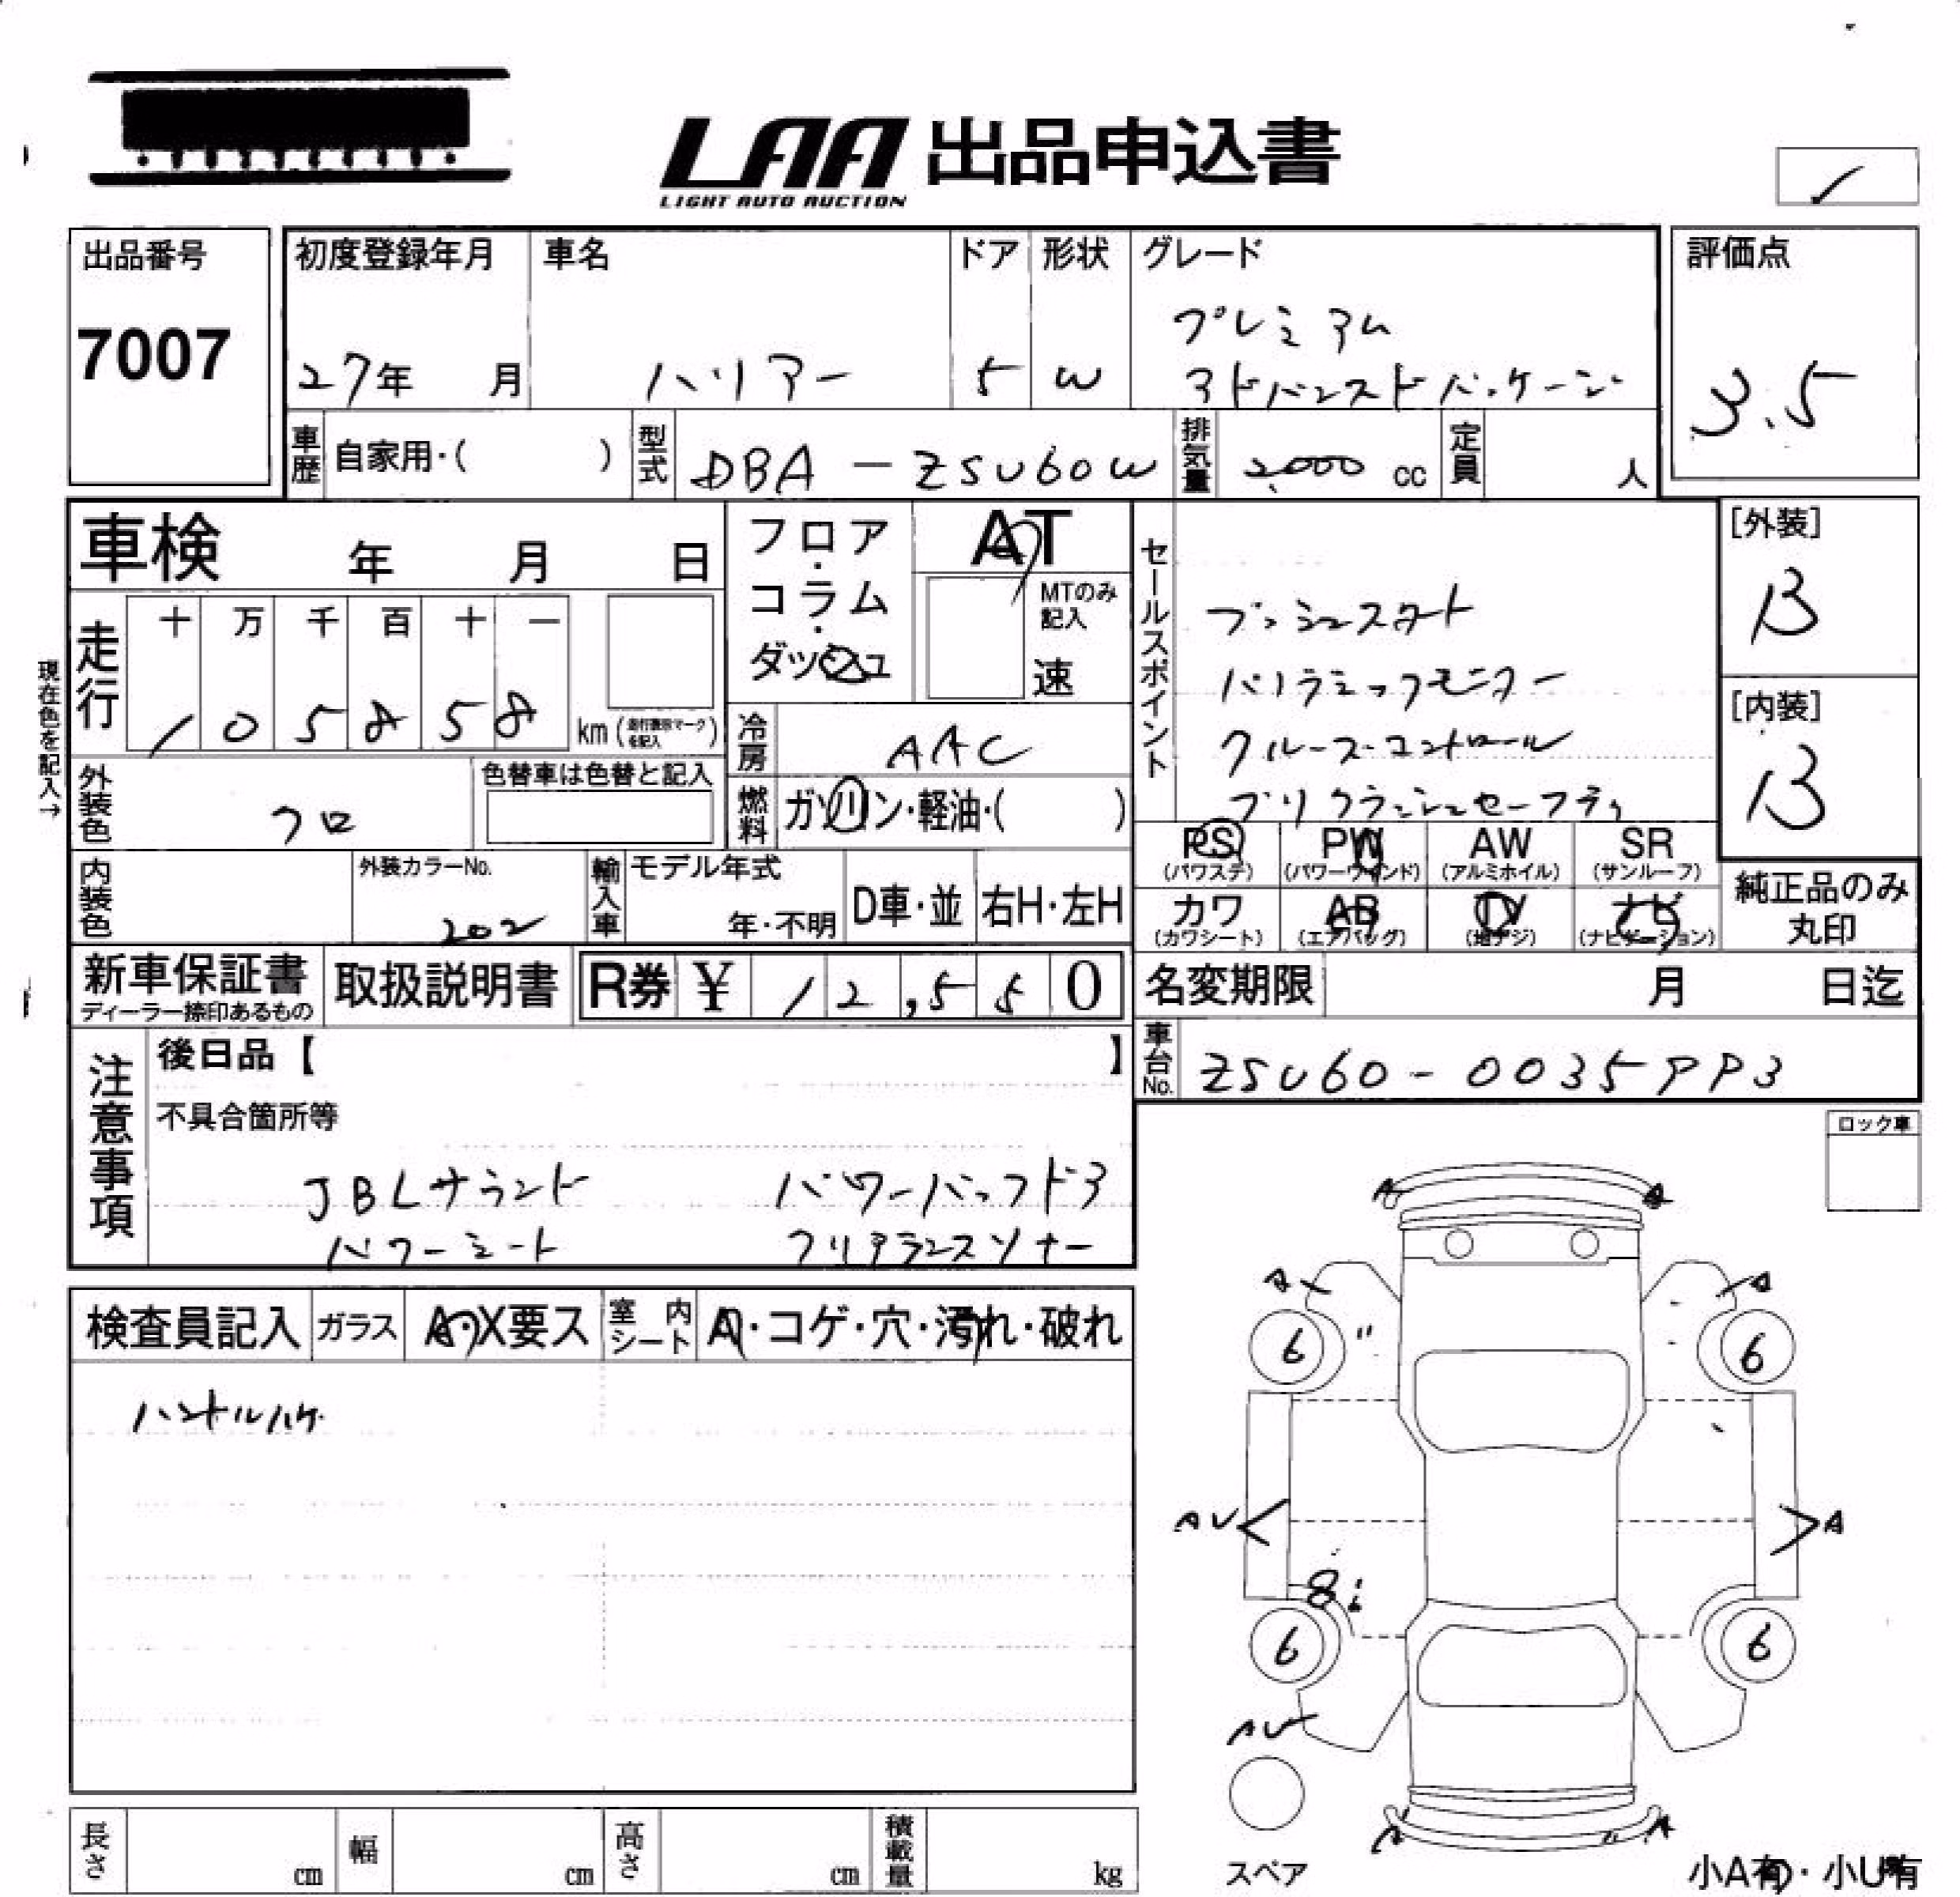 LAA 出品申込書
LIGHT AUTO AUCTION
出品番号
7007
初度登録年月
27年 月
車名
ハリアー
ドア
5
形状
W
グレード
プレミアム
アドバンスドパッケージ
評価点
3.5
車歴 自家用・( )
型式 DBA-ZSU60W
排気量 2,000 cc
定員 人
車検 年 月 日
フロア・コラム・ダッシュ
AT
MTのみ記入
速
セールスポイント
プッシュスタート
パノラミックモニター
クルーズコントロール
プリクラッシュセーフティ
[外装]
B
[内装]
B
現在色を記入→
走行
十 万 千 百 十 一
1 0 5 8 5 8 km
冷房 AAC
外装色 クロ
色替車は色替と記入
燃料 ガソリン・軽油・( )
内装色
外装カラーNo.
202
輸入車
モデル年式
年・不明
D車・並
右H・左H
PS (パワステ)
PW (パワーウインド)
AW (アルミホイル)
SR (サンルーフ)
カワ (カワシート)
AB (エアバッグ)
TV (地デジ)
ナビ (ナビゲーション)
純正品のみ丸印
新車保証書
ディーラー捺印あるもの
取扱説明書
R券 ¥ 12,550
名変期限 月 日迄
車台No. ZSU60-0035993
注意事項
後日品【 】
不具合箇所等
JBLサラウンド パワーバックドア
パワーシート クリアランスソナー
ロック車
検査員記入
ガラス A・X要ス
室内シート A・コゲ・穴・汚れ・破れ
ハンドルハゲ
A A
A A
6 " 6
AV A
8
6 6
AV
スペア
A A
長さ cm
幅 cm
高さ cm
積載量 kg
小A有・小U有